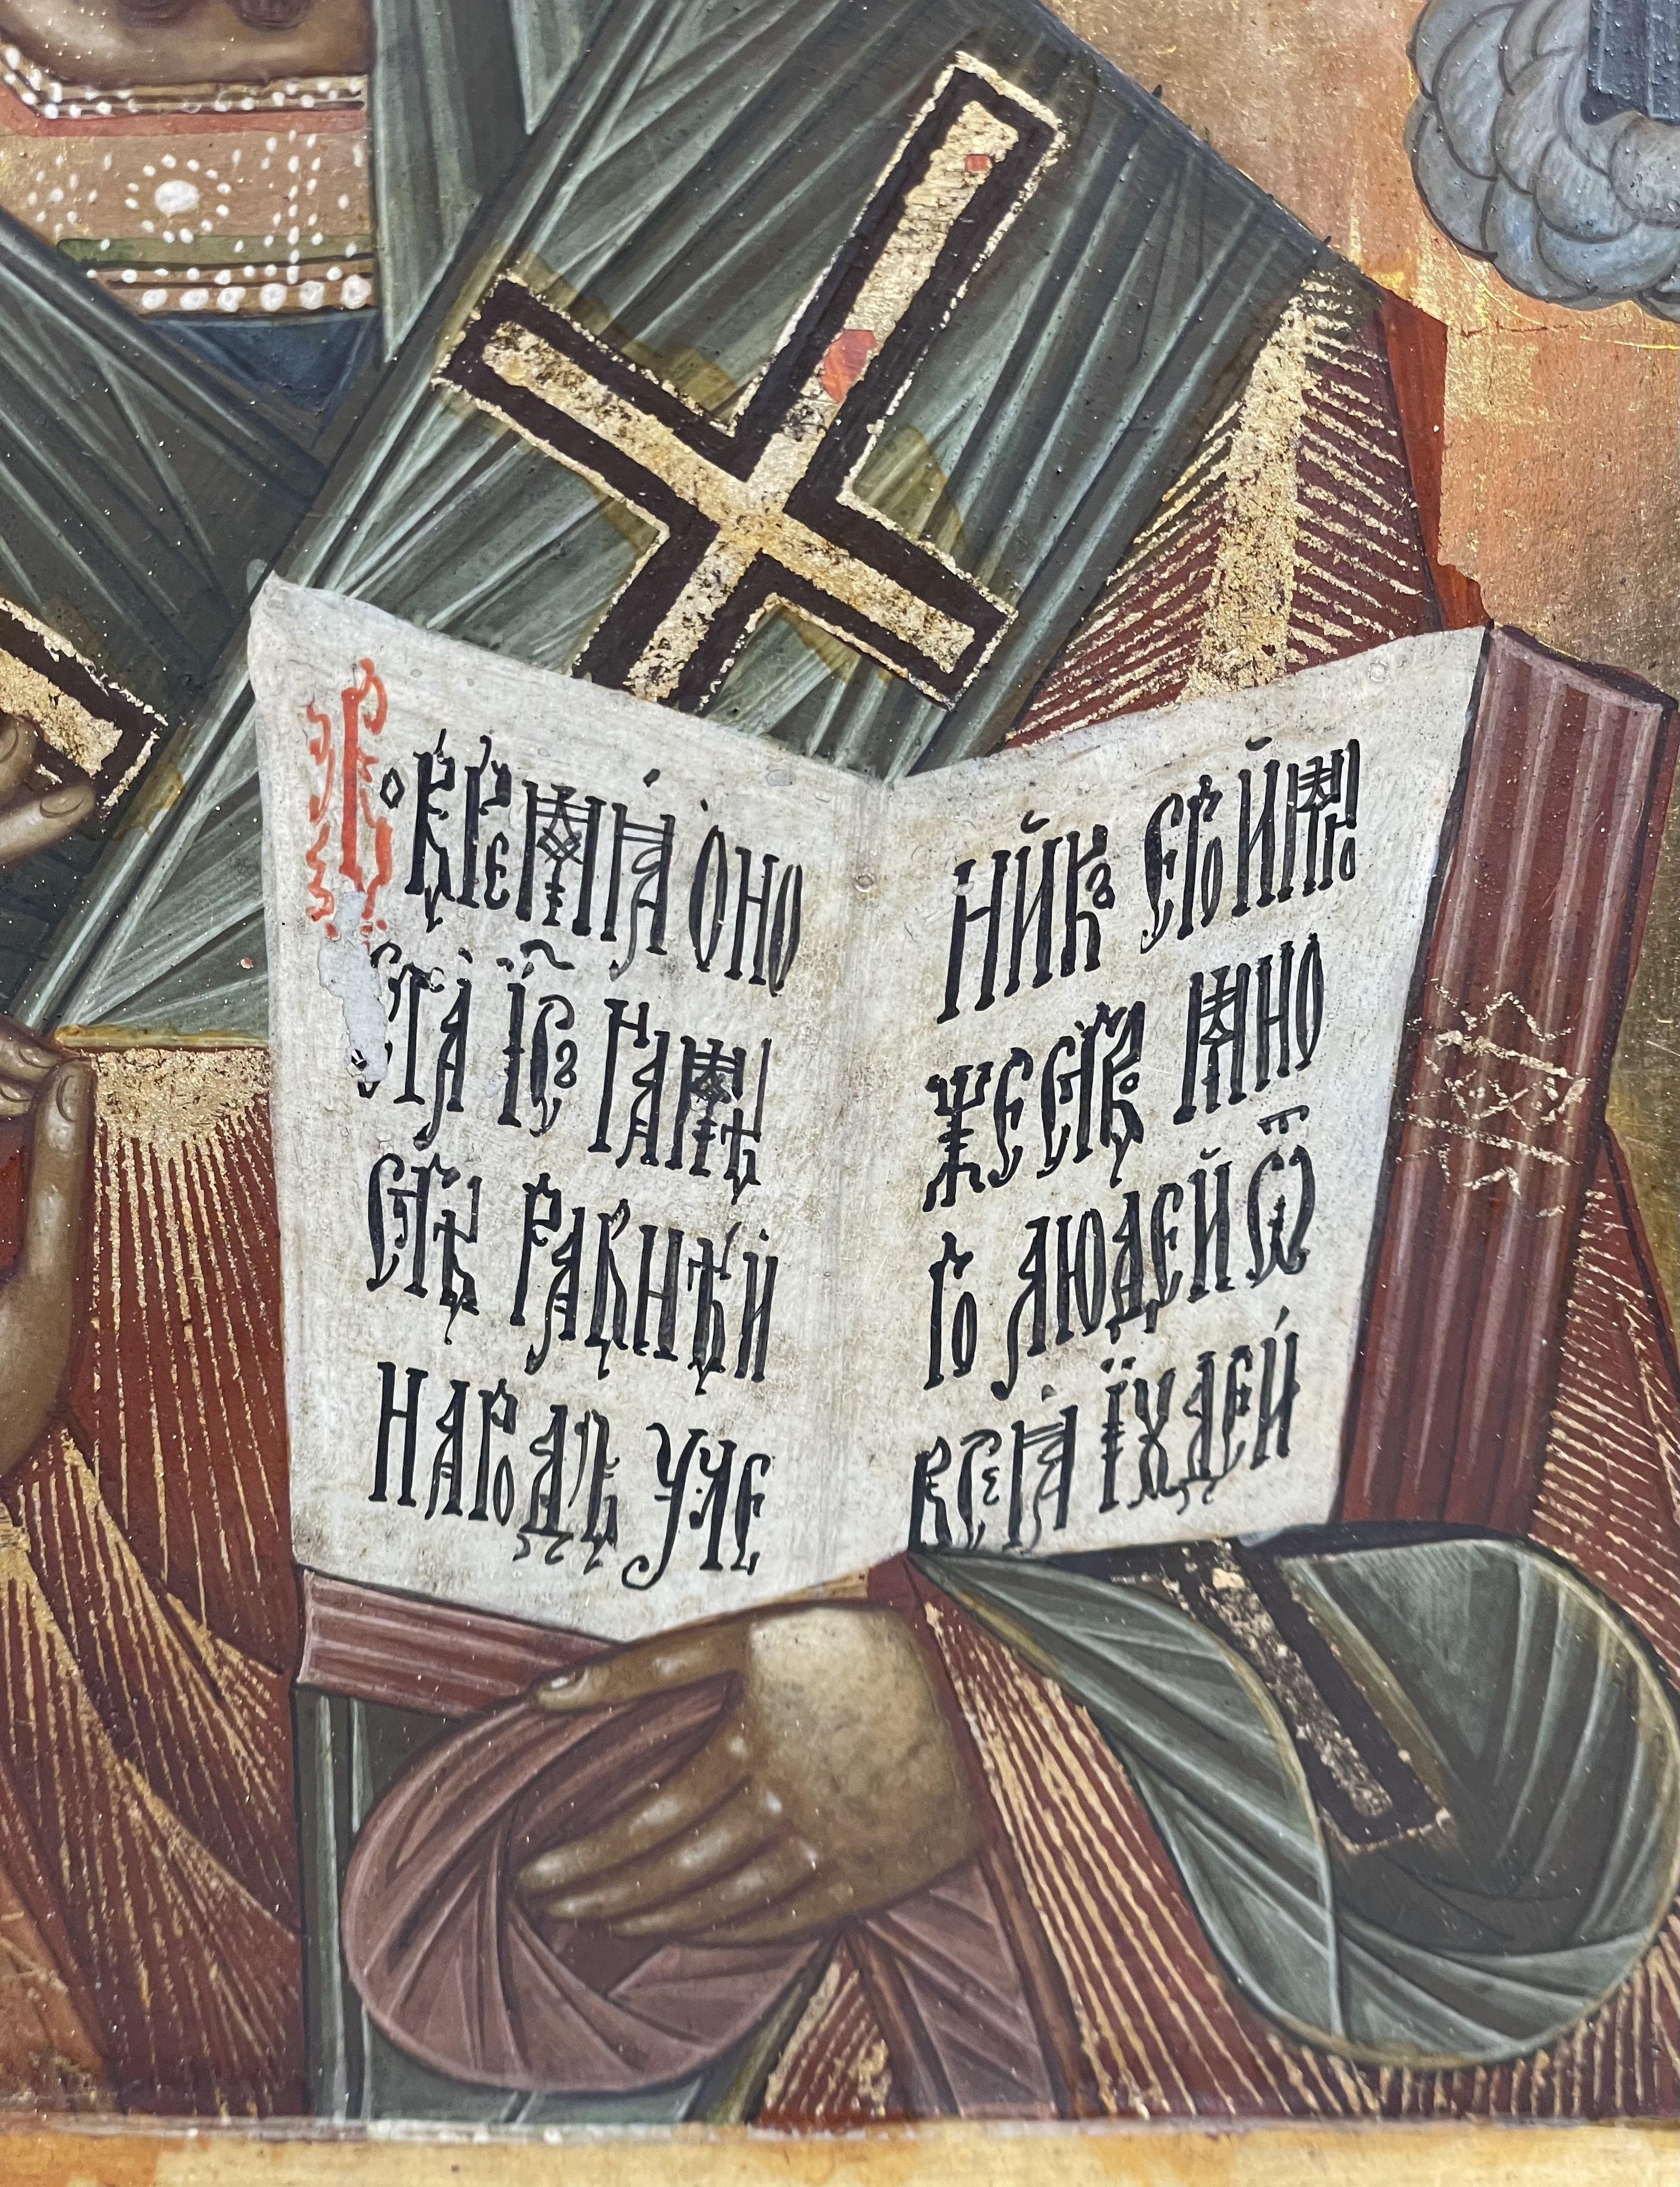 Во времѧ оно
ста Іс҃ъ на мѣ
стѣ равнѣ и
народъ уче
никъ его и мно
жество мно
го людей ѿ
всеѧ Їꙋдеи